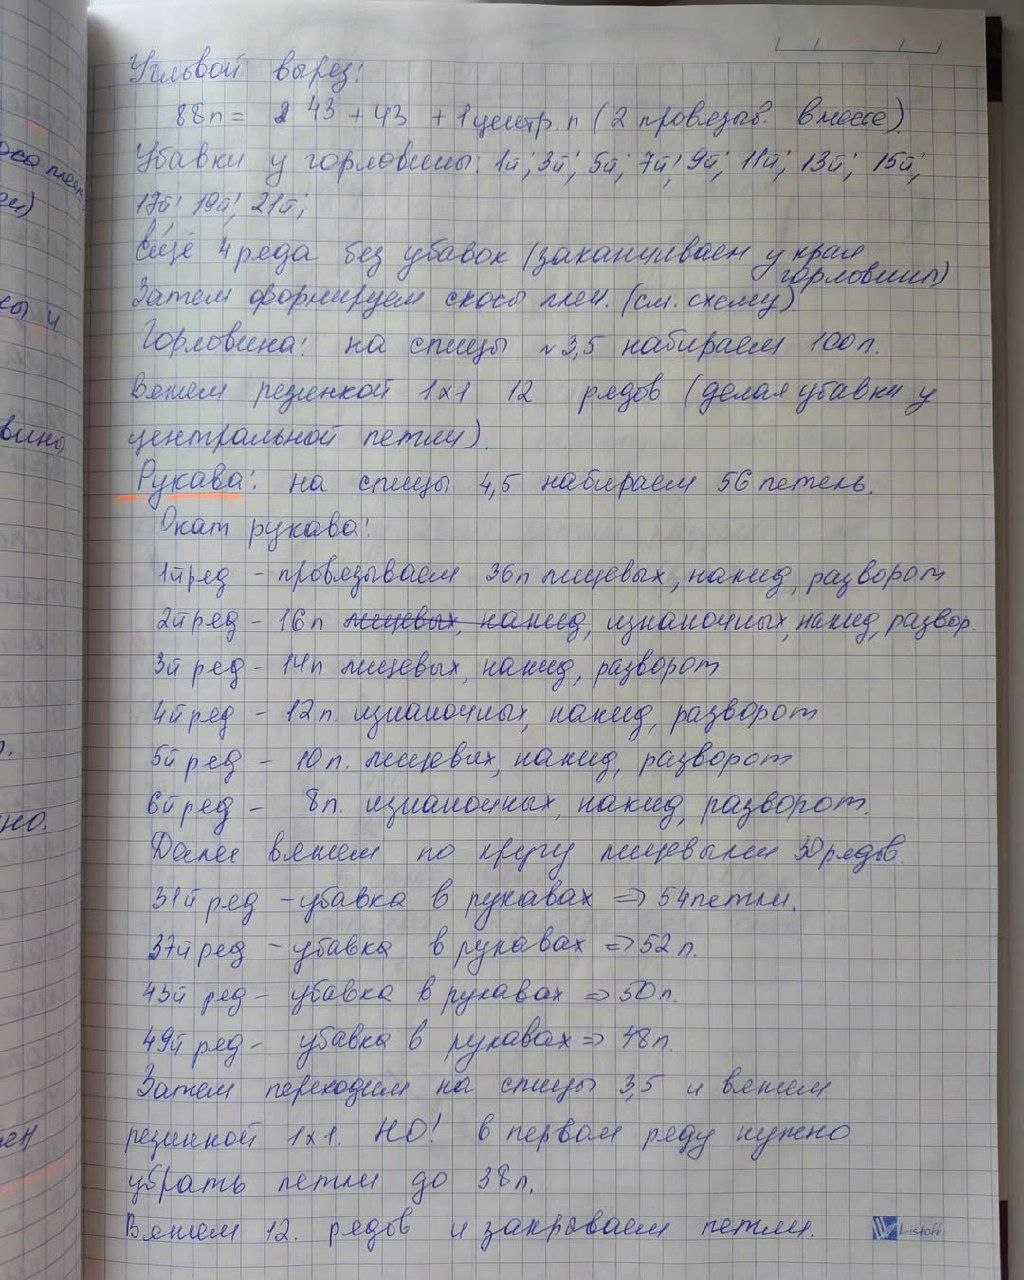 Угловой вырез:
88п = 43 + 43 + 1центр. п (2 провязыв. вместе)
Убавки у горловины: 1й; 3й; 5й; 7й; 9й; 11й; 13й; 15й;
17й; 19й; 21й;
Ещё 4 ряда без убавок (заканчиваем у края
горловины)
Затем формируем скосы плеч. (см. схему)
Горловина: на спицы №3,5 набираем 100п.
Вяжем резинкой 1х1 12 рядов (делая убавки у
центральной петли)
Рукава: на спицы 4,5 набираем 56 петель.
Окат рукава:
1й ряд - провязываем 36п лицевых, накид, разворот
2й ряд - 16п лицевых, накид, изнаночных, накид, развор.
3й ряд - 14п лицевых, накид, разворот
4й ряд - 12п. изнаночных, накид, разворот
5й ряд - 10п. лицевых, накид, разворот
6й ряд - 8п. изнаночных, накид, разворот.
Далее вяжем по кругу лицевыми 30 рядов.
31й ряд - убавка в рукавах => 54петли.
37й ряд - убавка в рукавах => 52п.
43й ряд - убавка в рукавах => 50п.
49й ряд - убавка в рукавах => 48п.
Затем переходим на спицы 3,5 и вяжем
резинкой 1х1. НО! в первом ряду нужно
убрать петли до 38п.
Вяжем 12. рядов и закрываем петли.
Listoff